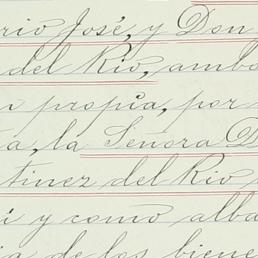 rio José, y Don
del Rio, amba
n propia, por
a, la Señora D
tinez del Rio
i y como alba
ia de los biene